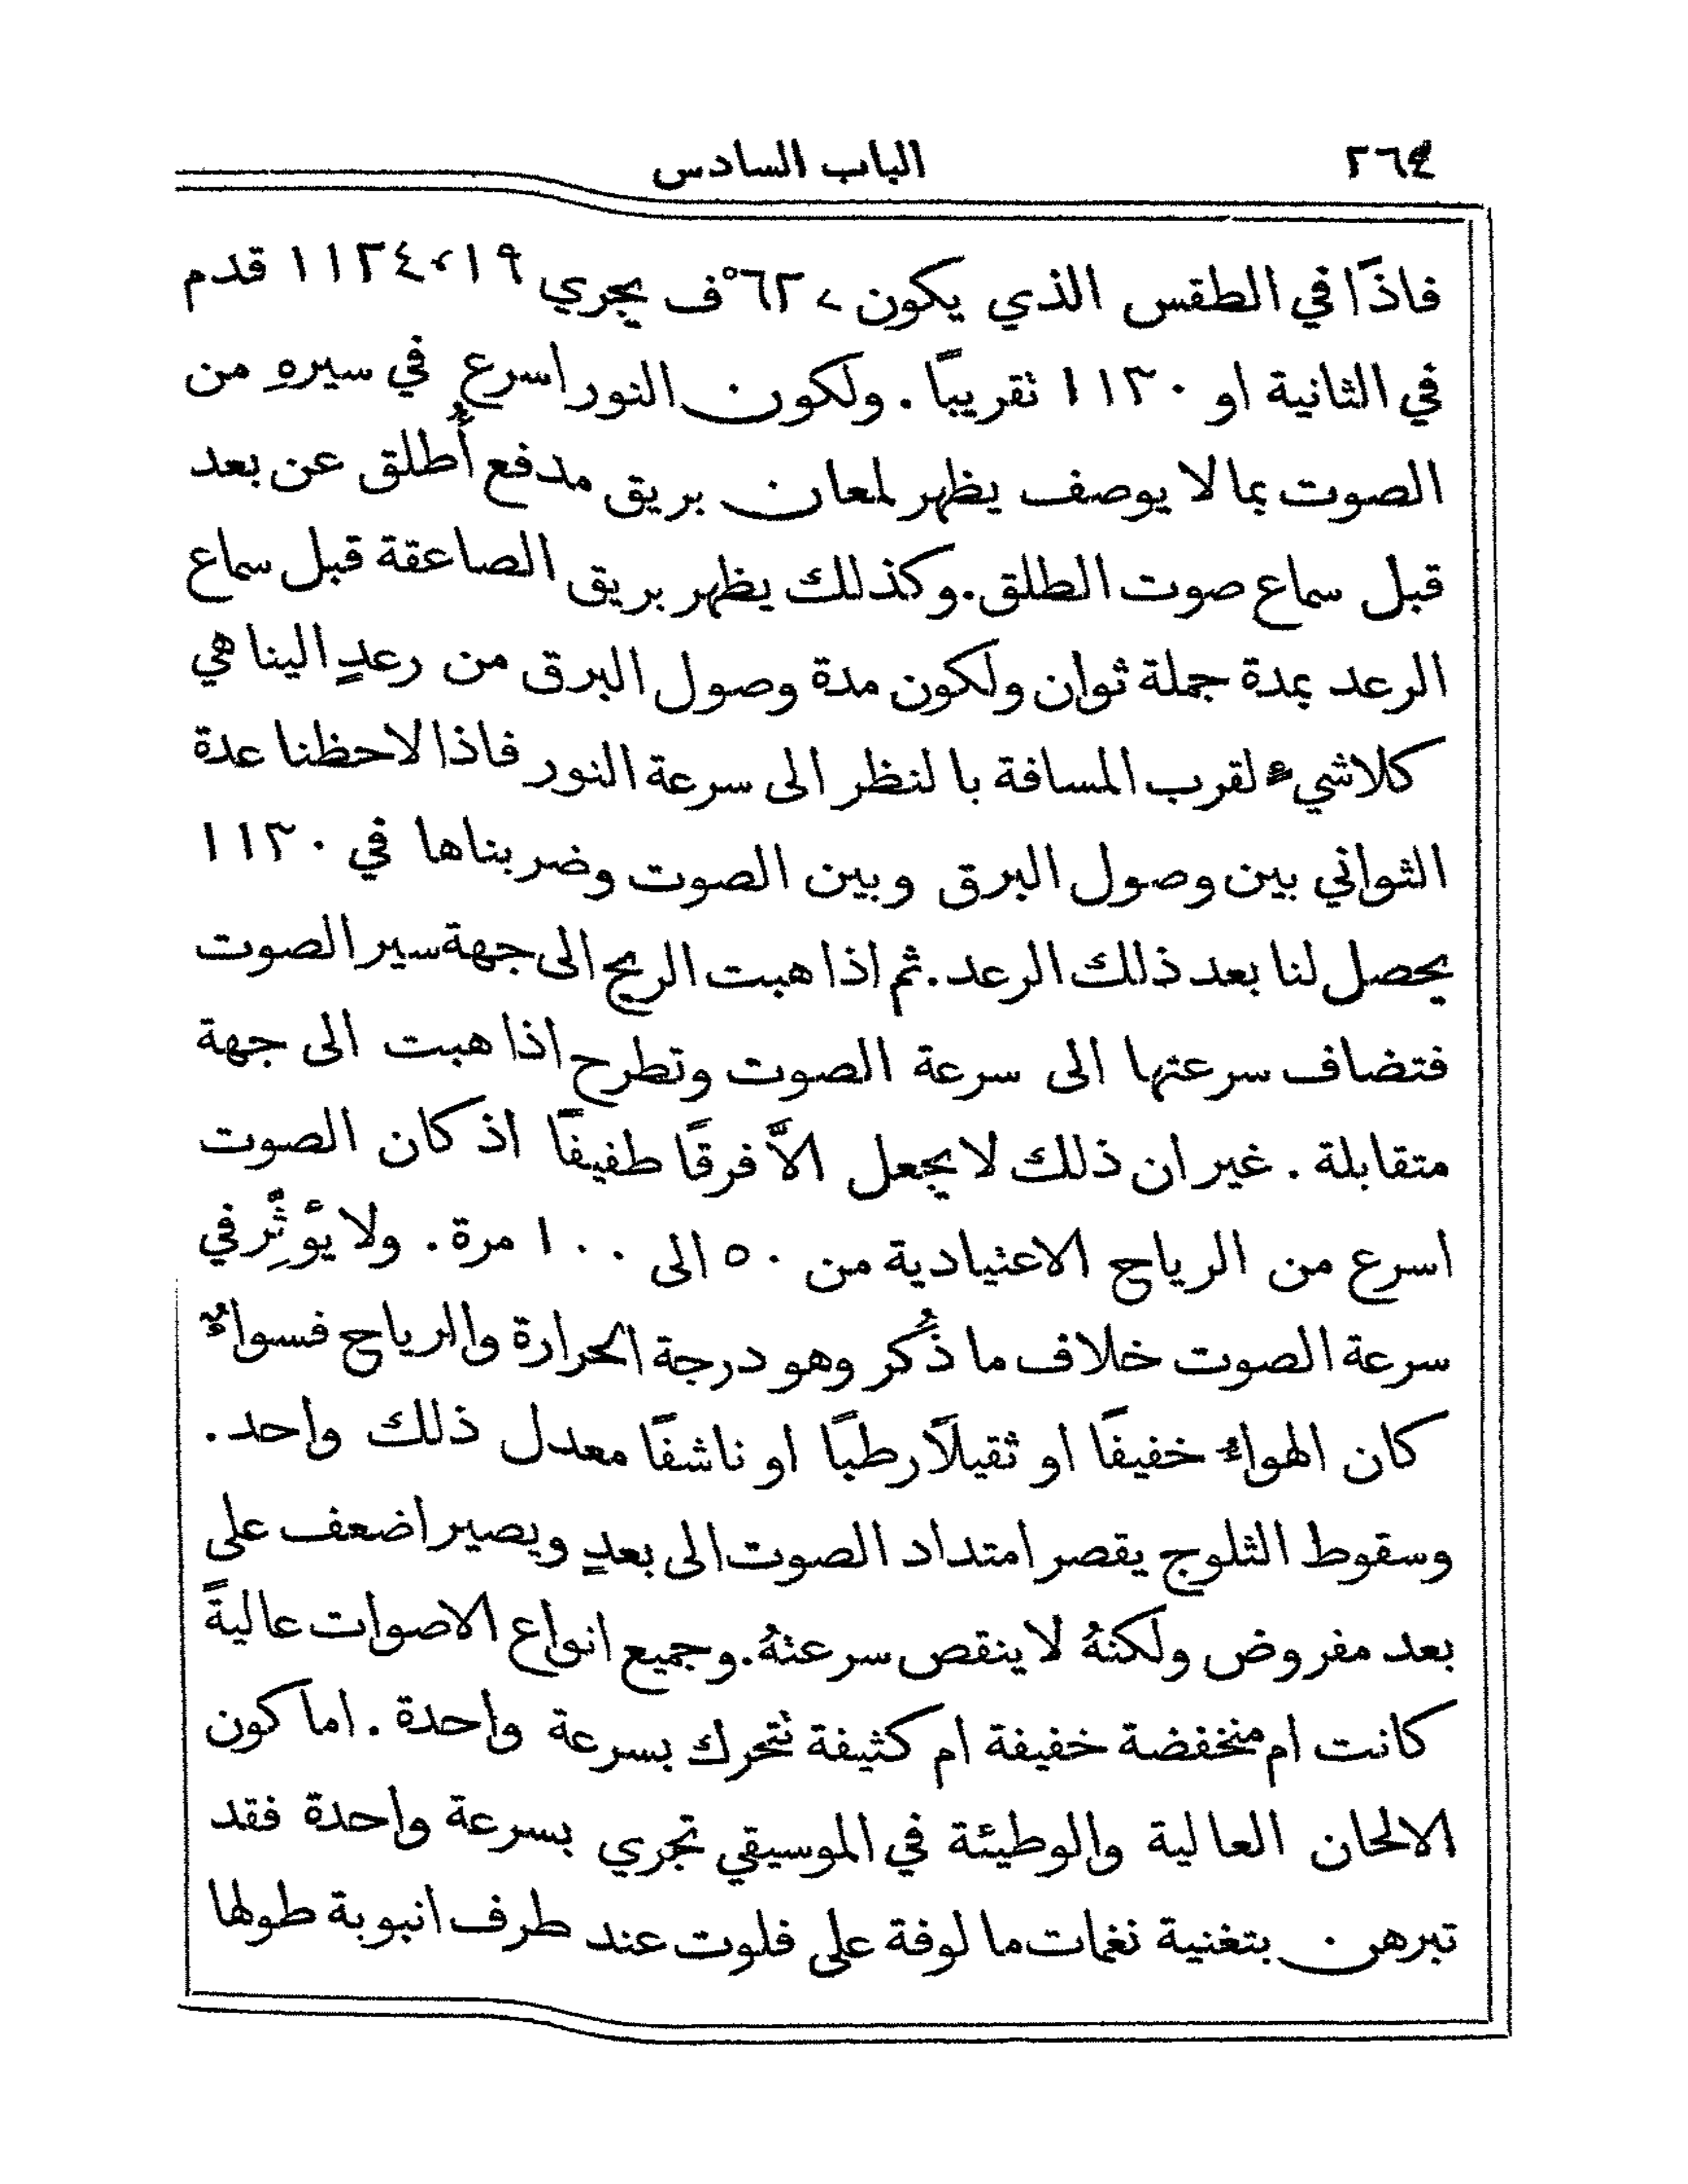 ٢٦٤
الباب السادس
فاذًا في الطقس الذي يكون > ٦٢°ف يجري ١١٢٤،١٩ قدم
في الثانية او ١١٣٠ نقريبًا . ولكون النور اسرع في سيرهِ من
الصوت بما لا يوصف يظهر لمعان بريق مدفع أُطلق عن بعد
قبل سماع صوت الطلق. وكذلك يظهر بريق الصاعقة قبل سماع
الرعد بمدة جملة ثوان ولكون مدة وصول البرق من رعدٍ الينا هي
كلاشيء لقرب المسافة بالنظر الى سرعة النور فاذا لاحظنا عدة
الثواني بين وصول البرق وبين الصوت وضربناها في ١١٣٠
يحصل لنا بعد ذلك الرعد. ثم اذا هبت الريح الى جهة سير الصوت
فتضاف سرعتها الى سرعة الصوت وتطرح اذا هبت الى جهة
متقابلة . غير ان ذلك لا يجعل الاَّ فرقًا طفيفًا اذ كان الصوت
اسرع من الرياح الاعنيادية من ٥٠ الى ١٠٠ مرة . ولا يؤَثِّر في
سرعة الصوت خلاف ما ذُكر وهو درجة الحرارة والرياح فسواءٌ
كان الهواءُ خفيفًا او ثقيلاً رطبًا او ناشفًا معدل ذلك واحد .
وسقوط الثلوج يقصر امتداد الصوت الى بعدٍ ويصير اضعف على
بعد مفروض ولكنهُ لا ينقص سرعنهُ. وجميع انواع الاصوات عاليةً
كانت ام منخفضة خفيفة ام كثيفة نتحرك بسرعة واحدة . اما كون
الالحان العالية والوطيئة في الموسيقي تجري بسرعة واحدة فقد
تبرهن بتغنية نغمات مالوفة على فلوت عند طرف انبوبة طولها